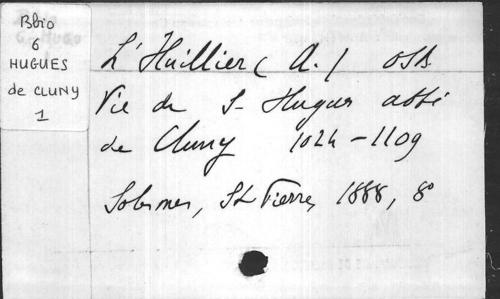 Bbio
6
HUGUES
de CLUNY
1
L'Huillier (A.) OSB.
Vie de S- Hugues abbé
de Cluny 1024-1109
Solesmes, St Pierre, 1888, 8°